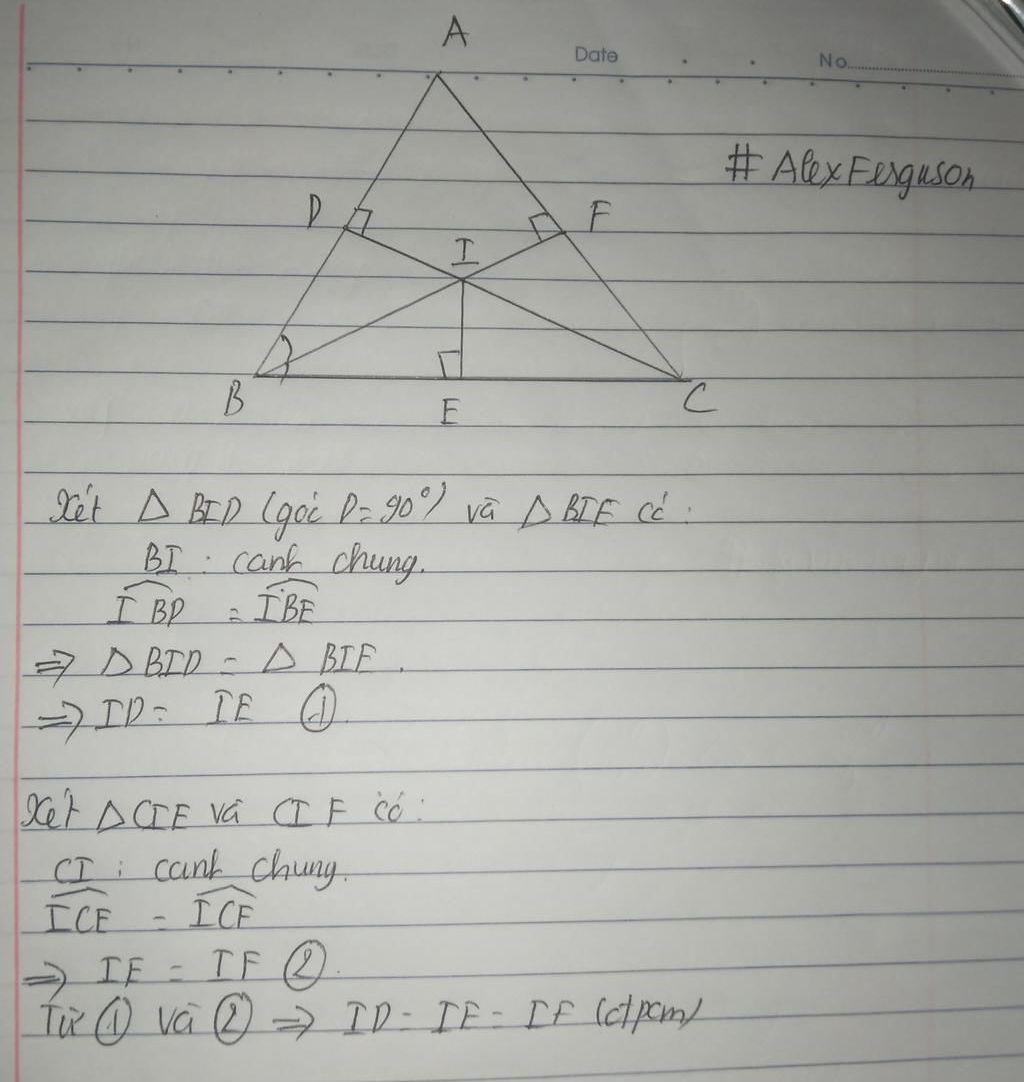 A
Date
No
# AlexFerguson
D
F
I
B
E
C
Xét Δ BID (góc D = 90°) và Δ BIE có:
BI : cạnh chung.
IBD = IBE
⇒ Δ BID = Δ BIE.
⇒ ID = IE ①.
Xét Δ CIE và CIF có:
CI : cạnh chung.
ICE = ICF
⇒ IE = IF ②.
Từ ① và ② ⇒ ID = IE = IF (đpcm)